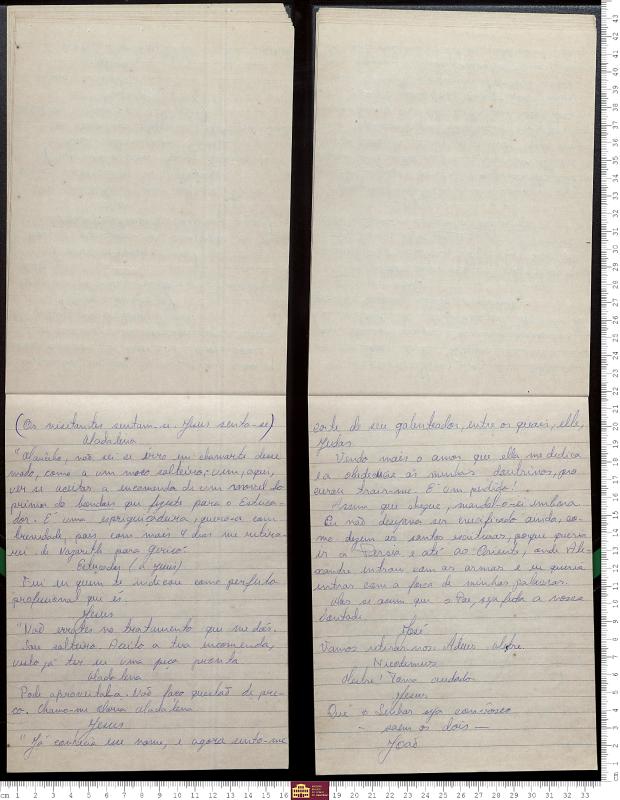 (Os visitantes sentam-se. Jesus senta-se)
Madalena
não sei se erro em chamarte desse
modo, como a um moço solteiro; vim, aqui,
ver se aceitas a encomenda de um movel do
primor do que fizeste para o
dor. É uma espriguiçadeira, quero-a com
brevidade, pois com mais 4 dias me retira-
rei de Nazareth para Jericó.
(a Jesus)
Fui eu quem te indicou como perfeito
profissional que és.
Jesus
"Não erraste no tratamento que me dás.
Sou solteiro. Aceito a tua encomenda,
visto já ter eu uma peça pronta
Madalena
Pode aproveital-a. Não faço questão de pre-
ço. Chamo-me Maria Madalena
Jesus
"Já conhecia esse nome, e agora sinto-me
corte de seu galanteador, entre os quais, elle,
Judas.
Vendo mais o amor que ella me dedica
e a obediencia ás minhas doutrinas, pro
curou trair-me. É um perdido!
Assim que chegue, mandal-o-ei embora.
Eu não desejava ser crucificado ainda, co-
mo dizem as santas escrituras, porque queria
ir a Persia e até ao Oriente, onde Ale-
xandre entrou com as armas e eu queria
entrar com a força de minhas palavras.
Mas se assim quer o Pae, seja feita a vossa
vontade.
José
Vamos retirar-nos. Adeus, Mestre.
Nicodemus
Mestre! Toma cuidado.
Jesus
Que o Senhor seja comvosco
- saem os dois -
João